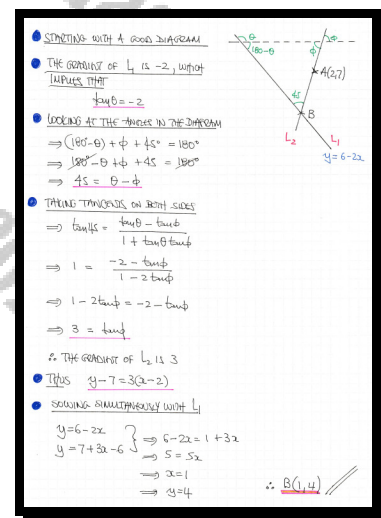 STARTING WITH A GOOD DIAGRAM
THE GRADIENT OF L₁ IS -2, WHICH
IMPLIES THAT
tanθ = -2
LOOKING AT THE ANGLES IN THE DIAGRAM
⇒ (180°-θ) + ϕ + 45° = 180°
⇒ 180° - θ + ϕ + 45 = 180°
⇒ 45 = θ - ϕ
TAKING TANGENTS ON BOTH SIDES
⇒ tan45 = (tanθ - tanϕ)/(1 + tanθtanϕ)
⇒ 1 = (-2 - tanϕ)/(1 - 2tanϕ)
⇒ 1 - 2tanϕ = -2 - tanϕ
⇒ 3 = tanϕ
∴ THE GRADIENT OF L₂ IS 3
THUS y-7 = 3(x-2)
SOLVING SIMULTANEOUSLY WITH L₁
y = 6-2x
y = 7+3x-6
} ⇒ 6-2x = 1+3x
⇒ 5 = 5x
⇒ x=1
⇒ y=4
∴ B(1,4)
θ
180-θ
ϕ
ϕ
A(2,7)
45
B
L₂
L₁
y=6-2x